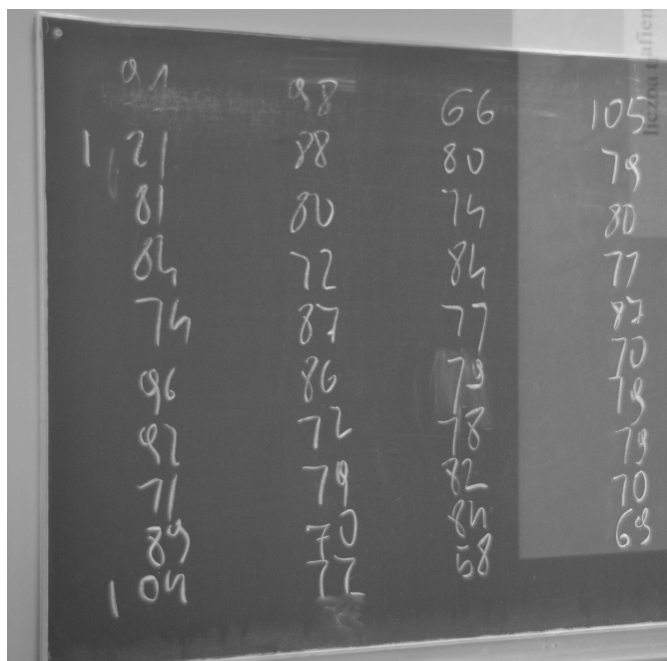 91 98 66 105
121 88 80 79
81 80 74 80
84 72 84 77
74 87 77 87
96 86 79 70
92 72 78 79
71 79 82 79
89 70 84 70
104 72 58 69
liczba trafień